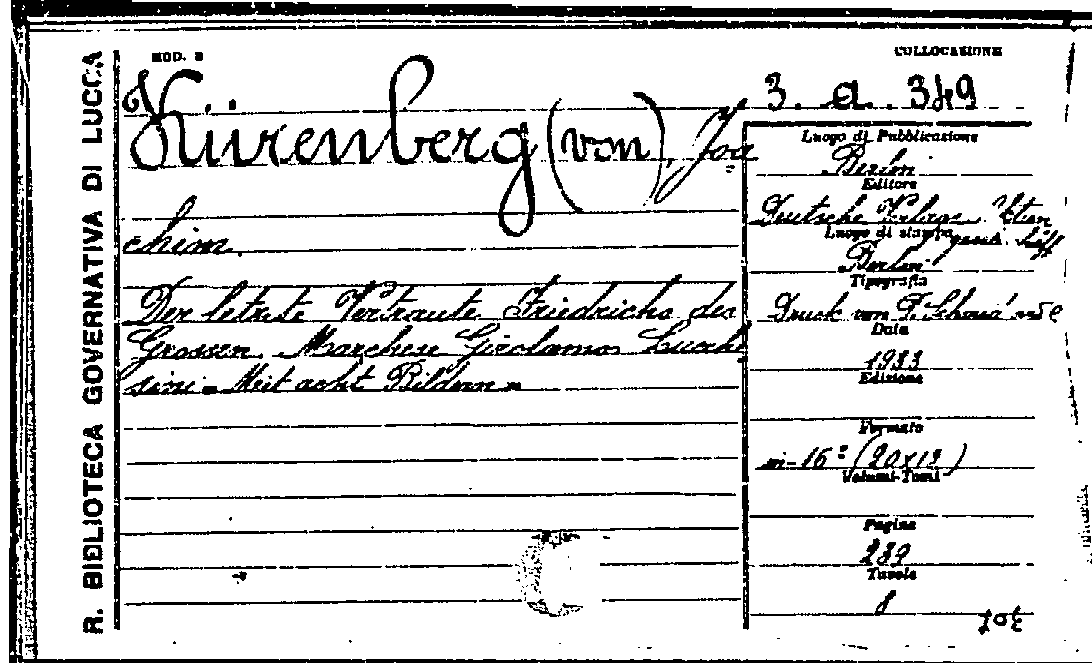 R. BIBLIOTECA GOVERNATIVA DI LUCCA
MOD. B
COLLOCAZIONE
3. a. 349
Kürenberg (von), Joa
chim.
Der letzte Vertraute Friedrichs des
Grossen. Marchese Girolamo Lucche
sini = Mit acht Bildern =
Luogo di Pubblicazione
Berlin
Editore
Deutsche Verlags
Luogo di stampa
Berlin
Tipografia
Druck von
Data
1933
Edizione
Formato
in-16° (20x13)
Volumi-Tomi
Pagine
289
Tavole
8